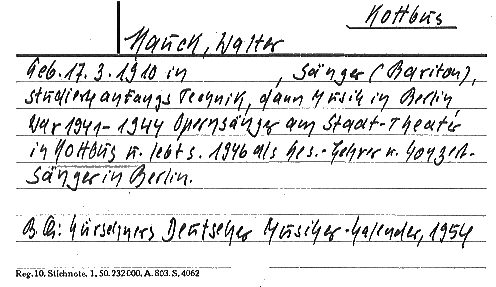 Kottbus
Hauck, Walter
Geb. 17. 3. 1910 in , Sänger (Bariton),
studierte anfangs Technik, dann Musik in Berlin
War 1941-1944 Opernsänger am Staat-Theater
in Kottbus u. lebt s. 1946 als Ges.-Lehrer u. Konzert-
Sänger in Berlin.
B.Q.: Kürschners Deutscher Musiker-Kalender, 1954
Reg. 10. Stichnote. 1. 50. 232 000. A. 803. S. 4062